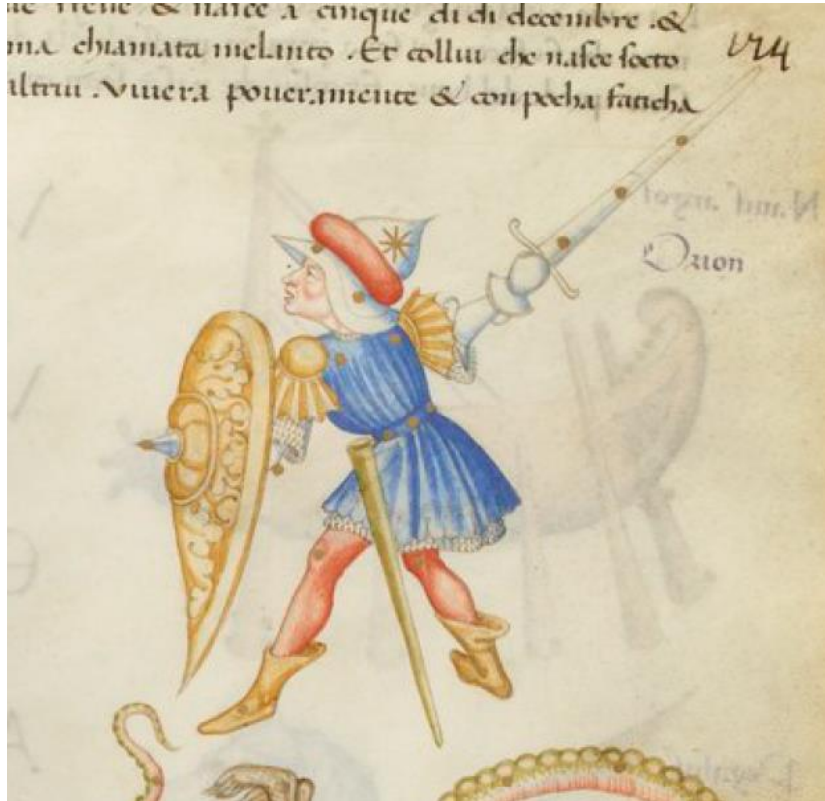 & nasce a cinque di di decembre . &
ma chiamata melanto . Et collui che nasce socto
altrui . Viuera poueramente & con pocha faticha
174
Orion